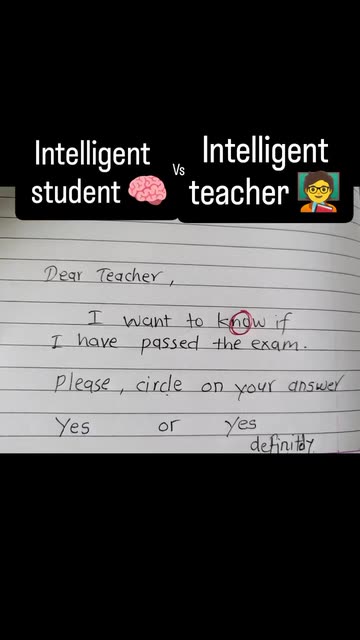 Intelligent student Vs Intelligent teacher
Dear Teacher,
I want to know if
I have passed the exam.
Please, circle on your answer
Yes or yes